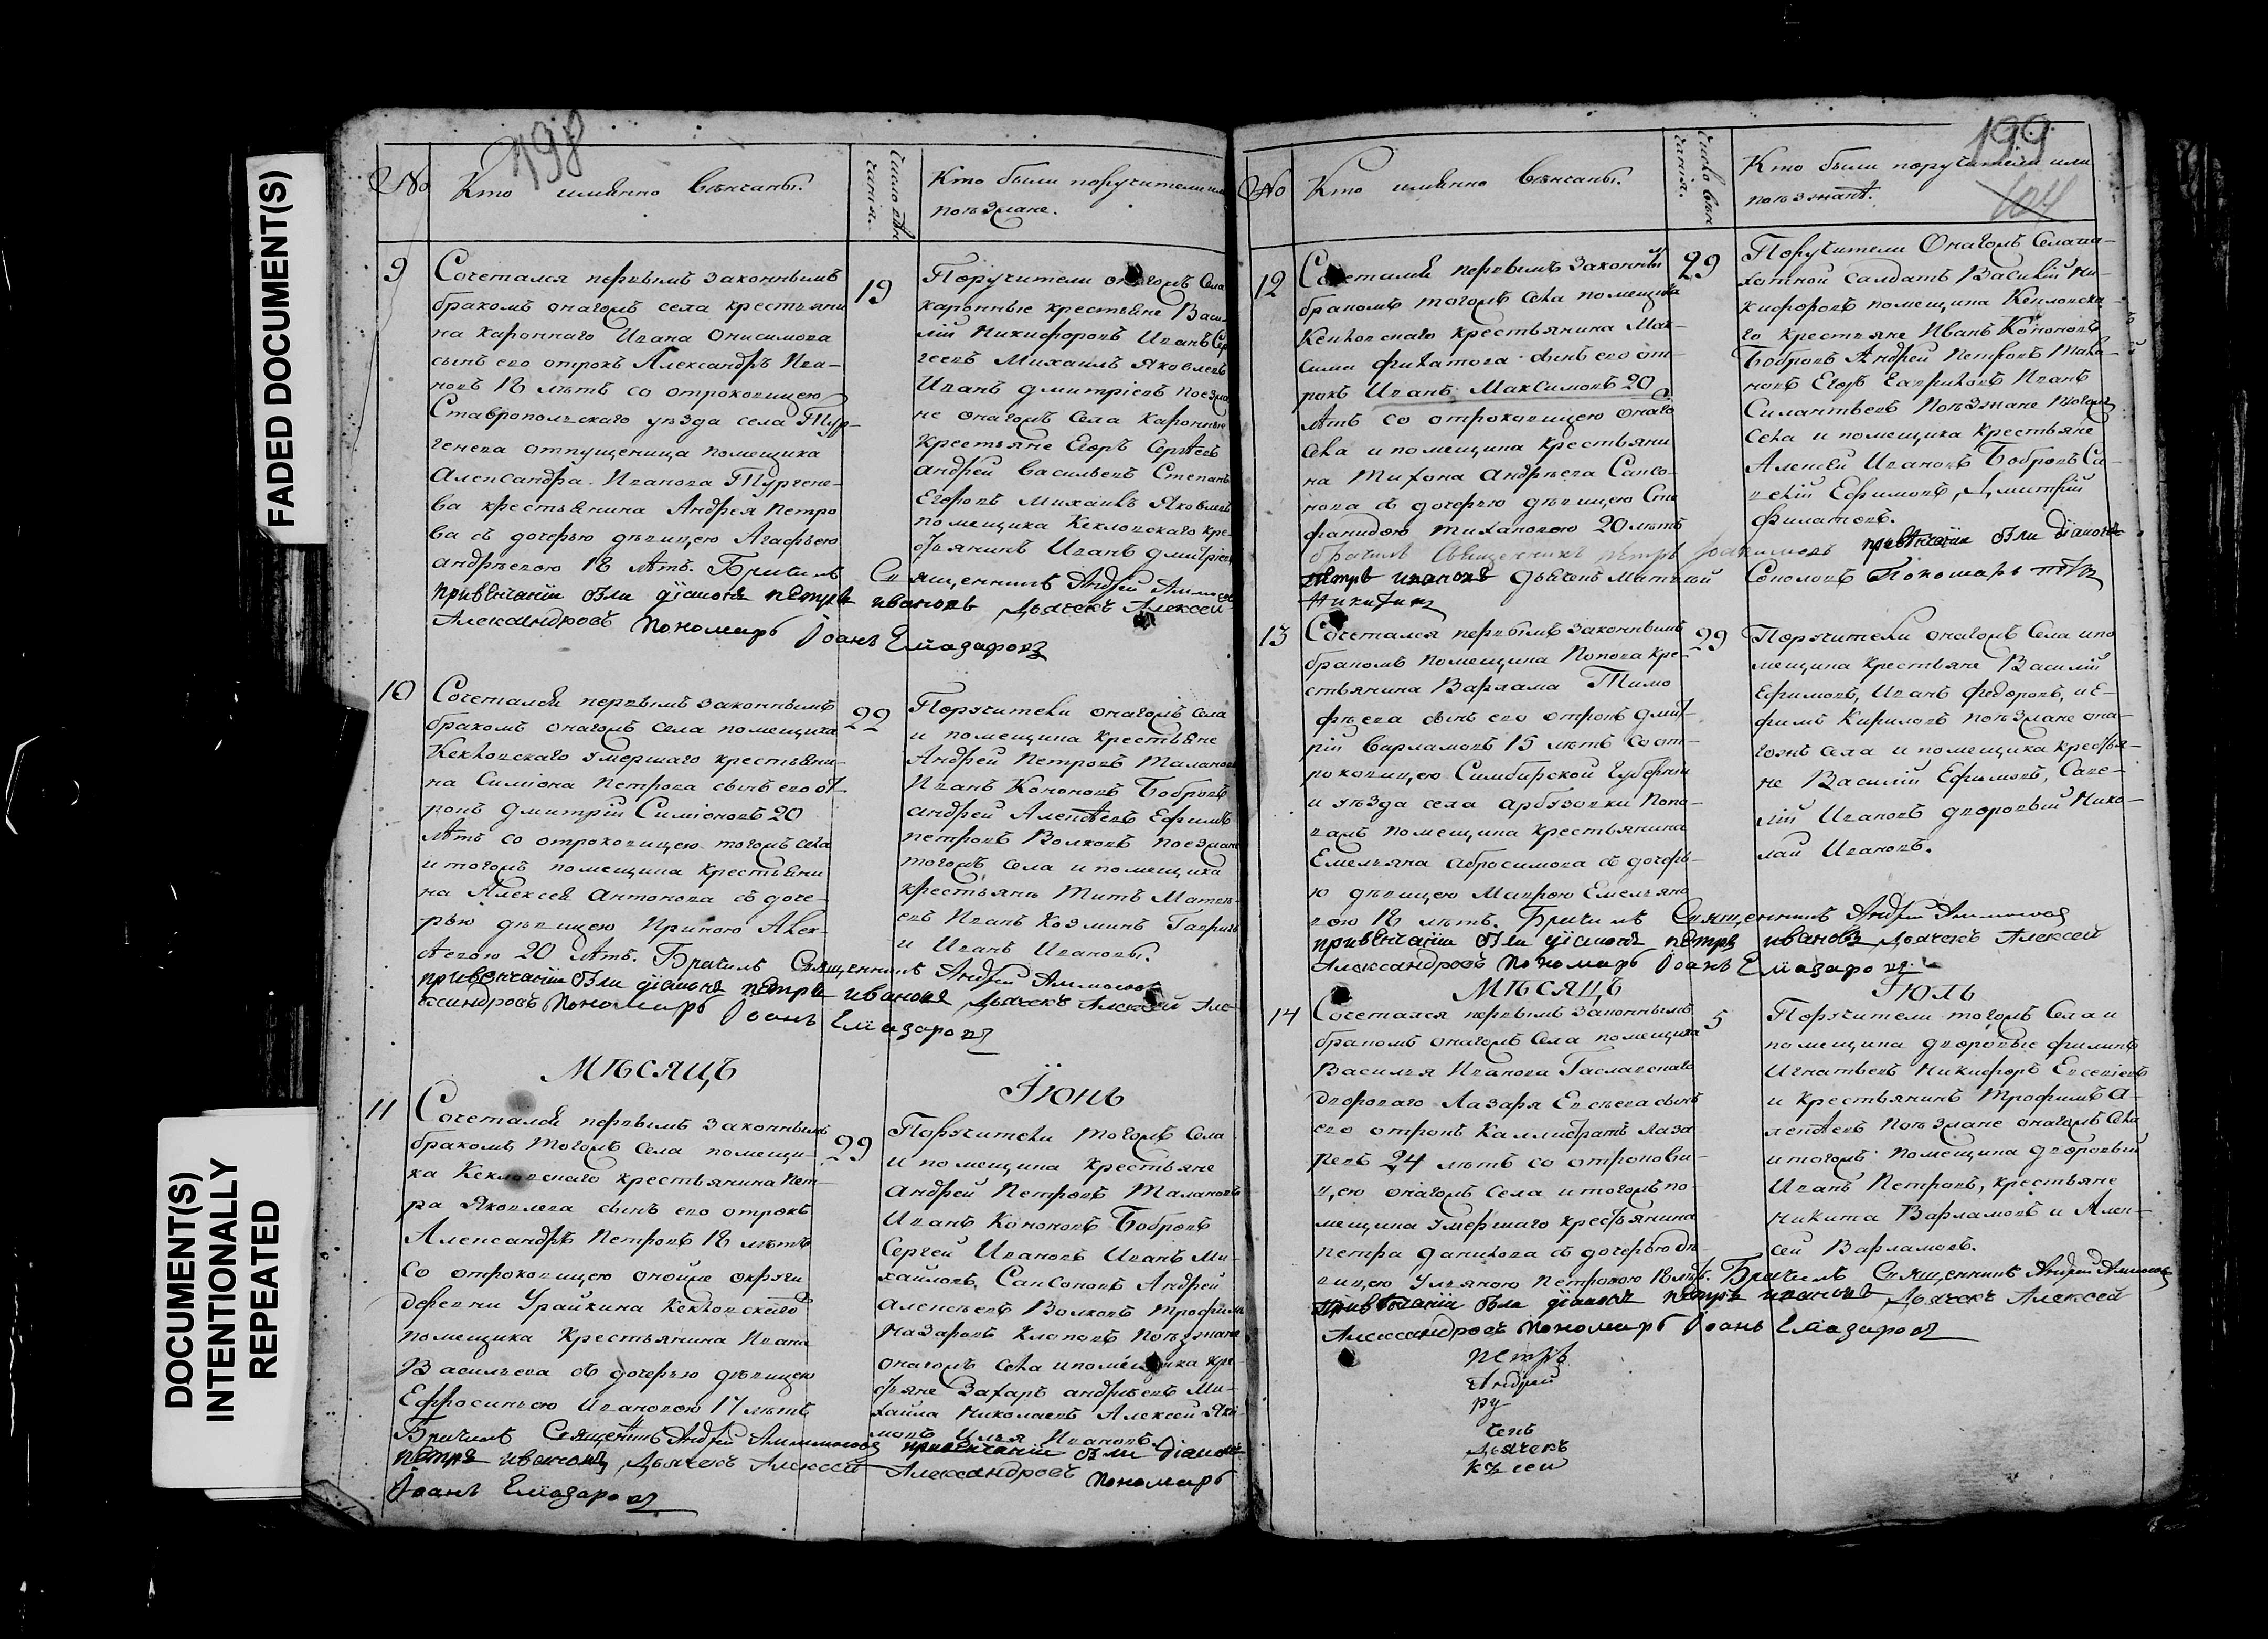 FADED DOCUMENT(S)
DOCUMENT(S)
INTENTIONALLY
REPEATED
198
№
Кто имянно вѣнчаны.
Число вѣнчания.
Кто были поручители или
поѣзжане.
9
Сочетался первымъ законнымъ
бракомъ онагожъ села крестьяни
на каронного Ивана Онисимова
сынъ его отрокъ Александръ Ива-
новъ 18 лѣтъ со отроковицею
Ставропольскаго уѣзда села Тур-
генева отпущеница помещика
Александра Иванова Тургене-
ва крестьянина Андрея Петро
ва съ дочерью дѣвицею Агафьею
андрѣевою 18 лѣтъ. Брачилъ Священникъ Андрей
привѣнчании были діаконъ петръ ивановъ Дьячекъ Алексей
Александровъ Пономарь Іоанъ Елиазаровъ
19
Поручители онагожъ Села
каронные крестьяне Васи-
лій Никифоровъ Иванъ Сер
геевъ Михаилъ Яковлевъ
Иванъ Дмитріевъ Поезжа
не онагожъ Села каронные
крестьяне Егоръ Сергѣевъ
андрей Васильевъ Степанъ
Егоровъ Михаилъ Яковлевъ
помещика Кекловскаго кре-
стьянинъ Иванъ Дмитріев
10
Сочетался первымъ законнымъ
бракомъ онагожъ села помещика
Кекловскаго умершаго крестьяни-
на Симіона Петрова сынъ его от
рокъ Дмитрій Симіоновъ 20
лѣтъ со отроковицею тогожъ села
и тогожъ помещика крестьяни
на Алексея Антонова съ доче-
рью дѣвицею Ириною Алек-
сѣевою 20 лѣтъ. Брачилъ Священникъ Андрей
привѣнчании были діаконъ петръ ивановъ Дьячекъ Алексей Але-
ксандровъ Пономарь Іоанъ Елиазаровъ
22
Поручители онагожъ села
и помещика крестьяне
Андрей Петровъ Малановъ
Иванъ Кононовъ Бобровъ
андрей Алексѣевъ Ефимъ
петровъ Волковъ поезжане
тогожъ села и помещика
крестьяне Титъ Матвѣ-
евъ Иванъ Козминъ Гаврилъ
и Иванъ Ивановы.
Мѣсяцъ Іюнь
11
Сочетался первымъ законнымъ
бракомъ тогожъ Села помещи-
ка Кекловскаго крестьянина Пет-
ра Яковлева сынъ его отрокъ
Александръ Петровъ 18 лѣтъ
со отроковицею оной же округи
деревни Урайкина Кекловскаго
помещика крестьянина Ивана
Васильева съ дочерью дѣвицею
Ефросиньею Ивановою 17 лѣтъ
Брачилъ Священникъ Андрей
привѣнчании были діаконъ
петръ ивановъ Дьячекъ Алексей Александровъ Пономарь
Іоанъ Елиазаровъ
29
Поручители тогожъ Села
и помещика крестьяне
андрей Петровъ Малановъ
Иванъ Кононовъ Бобровъ
Сергей Ивановъ Иванъ Ми-
хайловъ Сапсоновъ Андрей
алексѣевъ Волковъ Трофимъ
Назаровъ Клоповъ Поѣзжане
онагожъ села и помещика кре-
стьяне Захаръ андрѣевъ Ми-
хаила Николаевъ Алексей Яки-
мовъ Илья Ивановъ.
199
104
№
Кто имянно вѣнчаны.
Число вѣнчания.
Кто были поручители или
поѣзжанѣ.
12
Сочетался первымъ законным
бракомъ тогожъ села помещика
Кекловскаго крестьянина Мак-
сима Филатова сынъ его от-
рокъ Иванъ Максимовъ 20
лѣтъ со отроковицею онаго
села и помещика крестьяни
на Тихона Андрѣева Сапсо-
нова съ дочерью дѣвицею Сте
фанидою Тихоновою 20 лѣтъ
брачилъ Священникъ петръ привѣнчании были діаконъ
петръ ивановъ Дьяченъ Матвѣй Соколовъ Пономарь петръ
Никитинъ
29
Поручители Онагожъ Села па-
хотной салдатъ Василій Ни-
кифоровъ помещика Кекловска-
го крестьяне Иванъ Кононовъ
Бобровъ Андрей Петровъ Мала-
новъ Егоръ Гавриловъ Иванъ
Силантьевъ Поѣзжане тогожъ
Села и помещика крестьяне
Алексей Ивановъ Бобровъ Са-
велій Ефимовъ, Дмитрій
Филатовъ.
13
Сочетался первымъ законнымъ
бракомъ помещика Попова кре-
стьянина Варлама Тимо
фѣева сынъ его отрокъ Дмит-
рій Варламовъ 15 лѣтъ со от-
роковицею Симбирской губерніи
и уѣзда села арбузовки Попо-
важъ помещика крестьянина
Емельяна Абросимова съ дочерь-
ю дѣвицею Маврою Емельяно
вою 18 лѣтъ. Брачилъ Священникъ Андрей
привѣнчании были діаконъ петръ ивановъ Дьячекъ Алексей
Александровъ Пономарь Іоанъ Елиазаровъ
29
Поручители онагожъ Села и по
мещика крестьяне Василій
Ефимовъ, Иванъ Федоровъ, и Е-
фимъ Кириловъ поѣзжане она-
гожъ села и помещика крестья-
не Василій Ефимовъ, Саве-
лій Ивановъ дворовый Нико-
лай Ивановъ.
Мѣсяцъ Іюль
14
Сочетался первымъ законнымъ
бракомъ онагожъ Села помещика
Василья Иванова Гаславскаго
Дворового Лазаря Евсеева сынъ
его отрокъ Каллистратъ Лаза
ревъ 24 лѣтъ со отрокови-
цею онагожъ Села и тогожъ по-
мещика умершаго крестьянина
петра Данилова съ дочерью дѣ-
вицею Ульяною Петровою 18 лѣтъ. Брачилъ Священникъ Андрей
привѣнчании были діаконъ петръ ивановъ Дьячекъ Алексей
Александровъ Пономарь Іоанъ Елиазаровъ
5
Поручители тогожъ Села и
помещика дворовые филипъ
Игнатьевъ Никифоръ Евсевіевъ
и крестьянинъ Трофимъ А-
лексѣевъ Поѣзжане онагожъ села
и тогожъ помещика дворовый
Иванъ Петровъ, крестьяне
Никита Варламовъ и Алек-
сей Варламовъ.
петръ
Андрей
ру
Дьячекъ